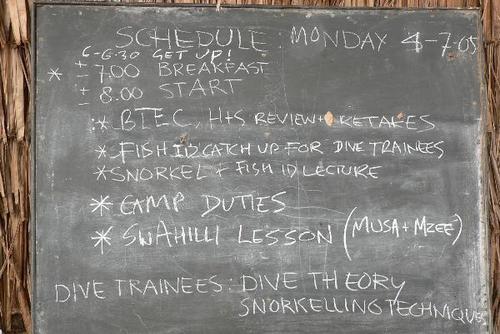 SCHEDULE: MONDAY 4-7-05
6-6.30 GET UP!
* ± 7.00 BREAKFAST
± 8.00 START
* BTEC, H+S REVIEW + RETAKES
* FISH ID CATCH UP FOR DIVE TRAINEES
* SNORKEL + FISH ID LECTURE
* CAMP DUTIES
* SWAHILLI LESSON (MUSA + MZEE)
DIVE TRAINEES: DIVE THEORY
SNORKELLING TECHNIQUES